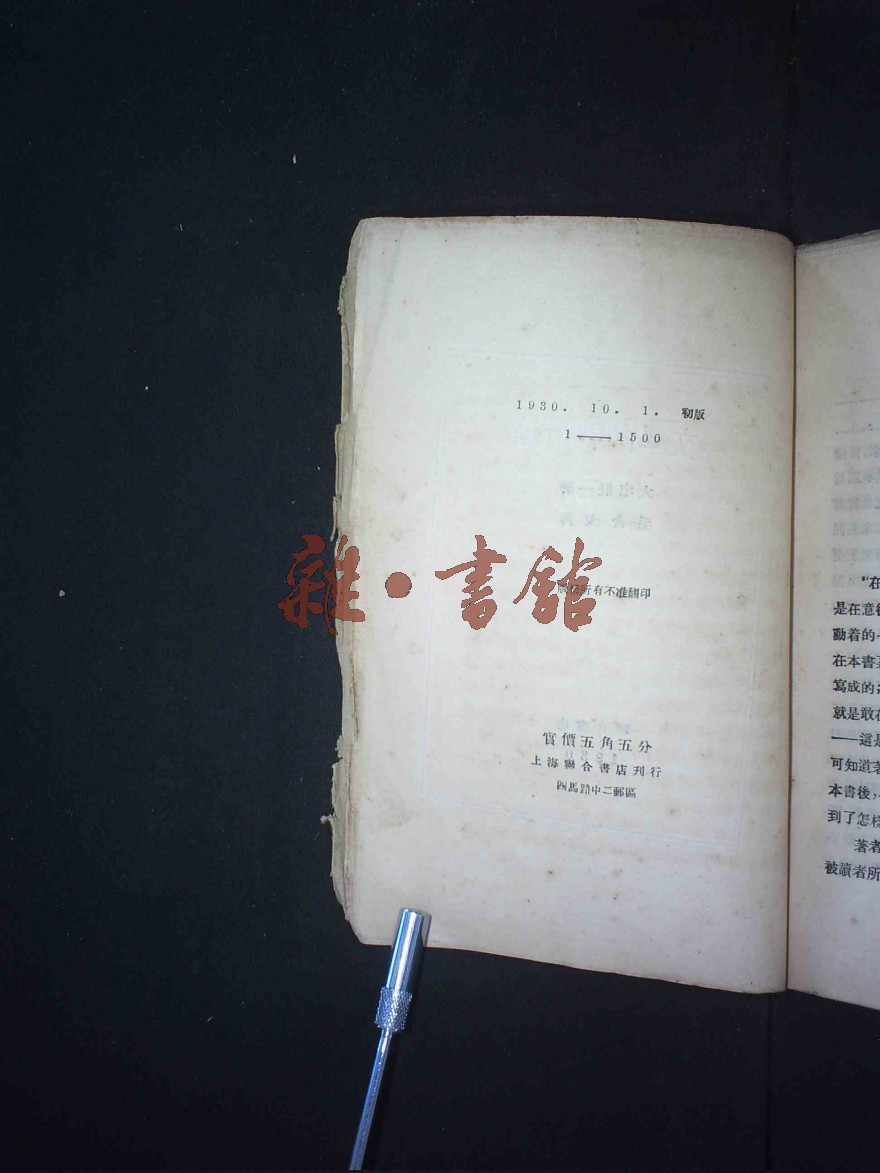 1930. 10. 1. 初版
1——1500
版權所有不准翻印
實價五角五分
上海聯合書店刊行
四馬路中二郵區
雜·書館
"在
是在意
動着的
在本書
寫成的
就是敢在
——這是
可知道著
本書後，
到了怎
著者
被讀者所